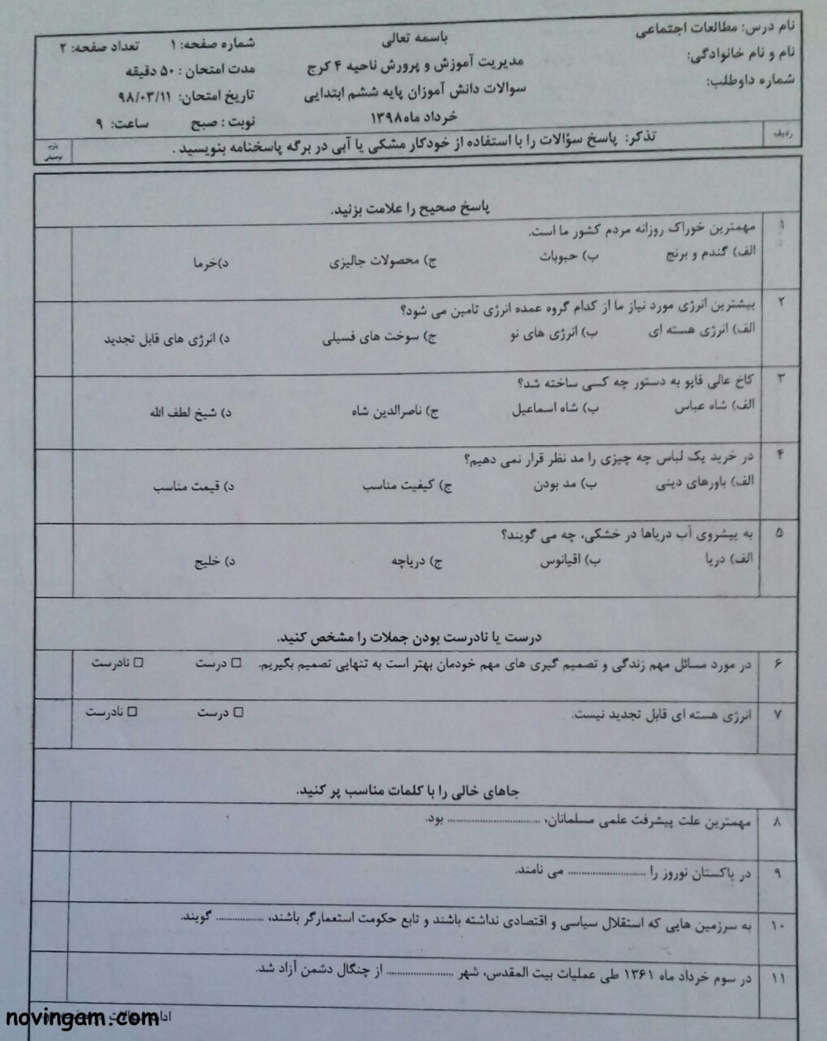 نام درس: مطالعات اجتماعی
نام و نام خانوادگی:
شماره داوطلب:
باسمه تعالی
مدیریت آموزش و پرورش ناحیه ۴ کرج
سوالات دانش آموزان پایه ششم ابتدایی
خرداد ماه ۱۳۹۸
شماره صفحه: ۱ تعداد صفحه: ۲
مدت امتحان: ۵۰ دقیقه
تاریخ امتحان: ۹۸/۰۳/۱۱
نوبت: صبح ساعت: ۹
ردیف تذکر: پاسخ سؤالات را با استفاده از خودکار مشکی یا آبی در برگه پاسخنامه بنویسید.
پاسخ صحیح را علامت بزنید.
۱ مهمترین خوراک روزانه مردم کشور ما است.
الف) گندم و برنج ب) حبوبات ج) محصولات جالیزی د)خرما
۲ بیشترین انرژی مورد نیاز ما از کدام گروه عمده انرژی تامین می شود؟
الف) انرژی هسته ای ب) انرژی های نو ج) سوخت های فسیلی د) انرژی های قابل تجدید
۳ کاخ عالی قاپو به دستور چه کسی ساخته شد؟
الف) شاه عباس ب) شاه اسماعیل ج) ناصرالدین شاه د) شیخ لطف الله
۴ در خرید یک لباس چه چیزی را مد نظر قرار نمی دهیم؟
الف) باورهای دینی ب) مد بودن ج) کیفیت مناسب د) قیمت مناسب
۵ به پیشروی آب دریاها در خشکی، چه می گویند؟
الف) دریا ب) اقیانوس ج) دریاچه د) خلیج
درست یا نادرست بودن جملات را مشخص کنید.
۶ در مورد مسائل مهم زندگی و تصمیم گیری های مهم خودمان بهتر است به تنهایی تصمیم بگیریم. □ درست □ نادرست
۷ انرژی هسته ای قابل تجدید نیست. □ درست □ نادرست
جاهای خالی را با کلمات مناسب پر کنید.
۸ مهمترین علت پیشرفت علمی مسلمانان، .............................. بود.
۹ در پاکستان نوروز را .......................... می نامند.
۱۰ به سرزمین هایی که استقلال سیاسی و اقتصادی نداشته باشند و تابع حکومت استعمارگر باشند، ................ گویند.
۱۱ در سوم خرداد ماه ۱۳۶۱ طی عملیات بیت المقدس، شهر ...................... از چنگال دشمن آزاد شد.
novingam.com